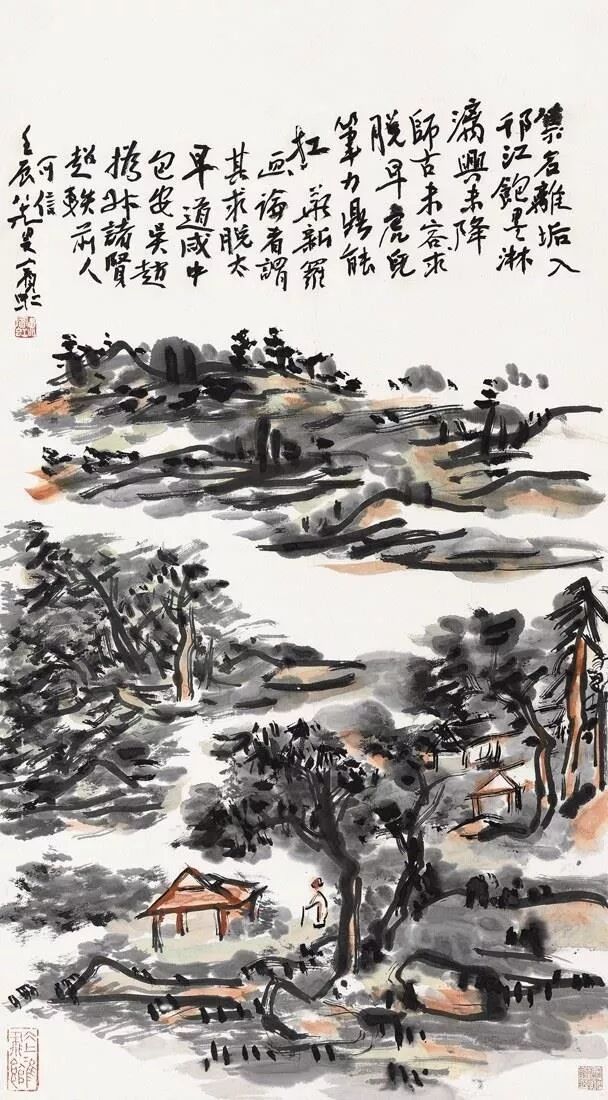 集名離垢入
邗江飽墨淋
漓興未降
師古未容求
脫早虎兒
筆力鼎能
扛 華新羅
畫論者謂
其求脫太
早道咸中
包安吳趙
撝叔諸賢
超軼前人
可信
壬辰叟賓虹